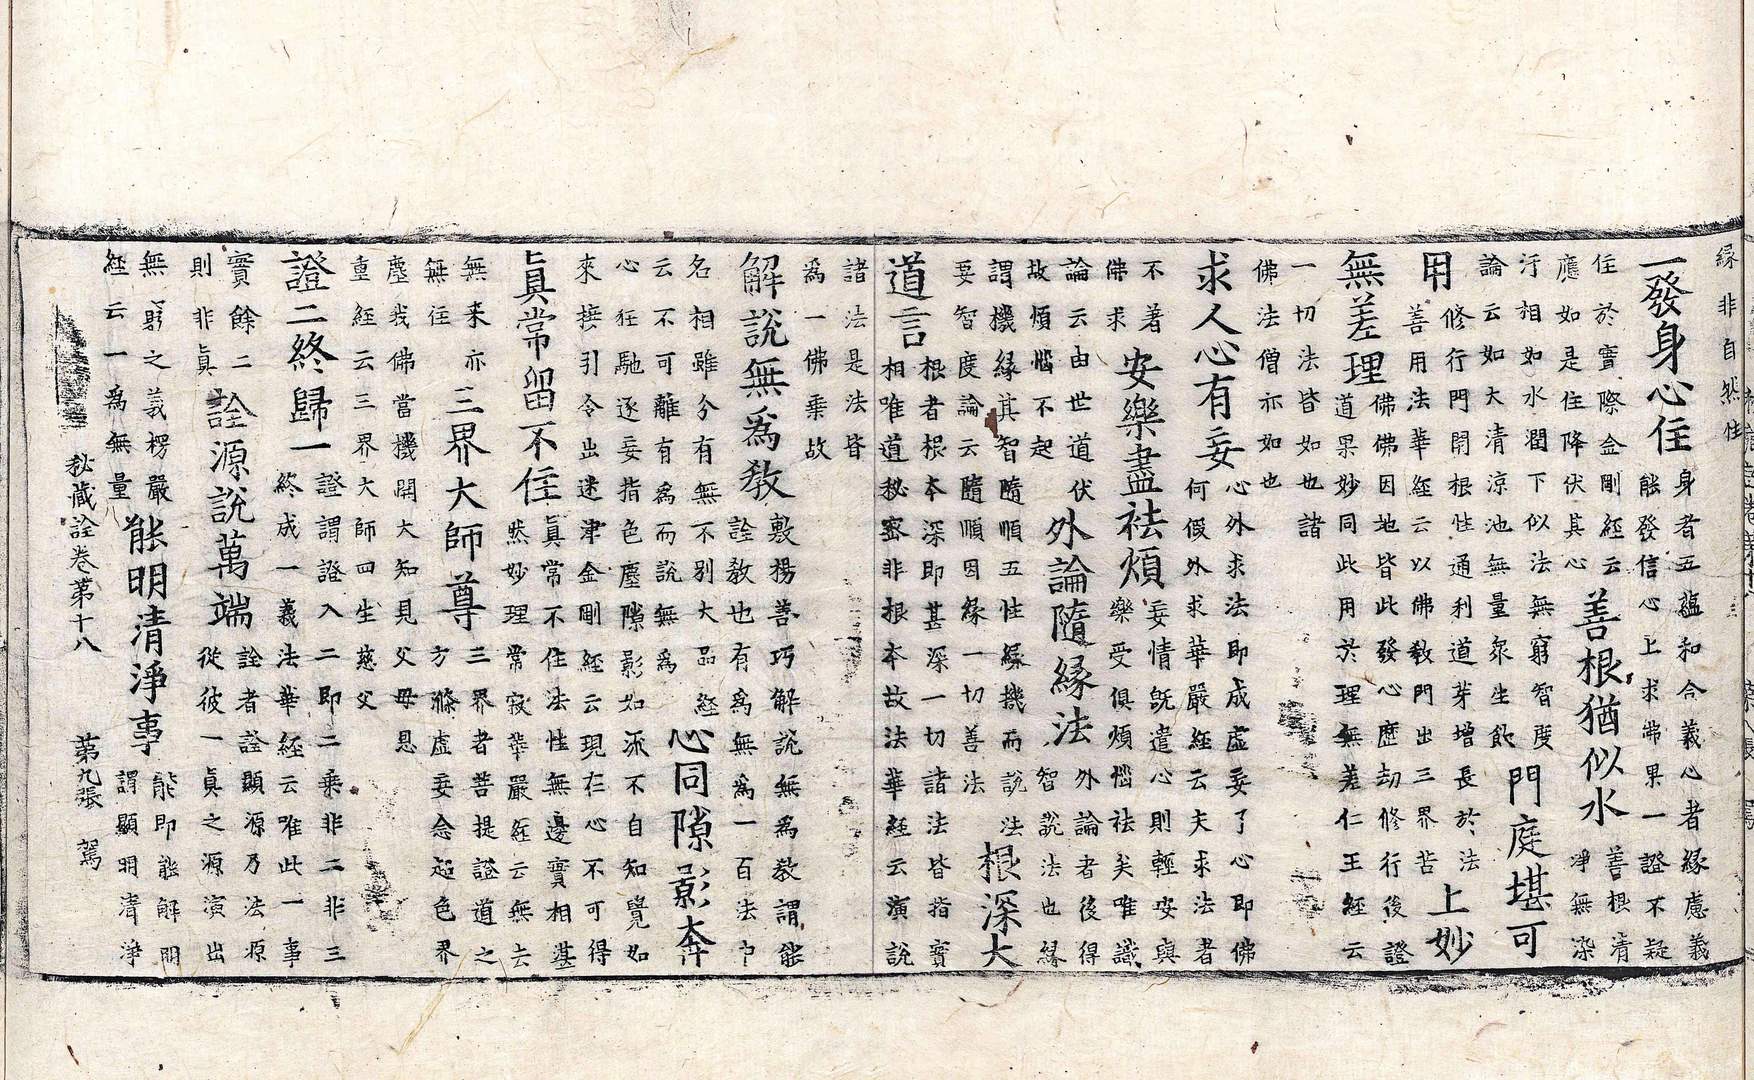 緣非自然住
一發身心住
身者五蘊和合義心者緣慮義
能發信心上求佛果一證不疑
住於實際金剛經云
應如是住降伏其心
善根猶似水
善根清
淨無染
汙相如水潤下似法無窮智度
論云如大清涼池無量眾生飲
門庭堪可
用
修行門開根性通利道芽增長於法
善用法華經云以佛教門出三界苦
上妙
無差理
佛佛因地皆此發心歷劫修行後證
道果妙同此用於理無差仁王經云
一切法皆如也諸
佛法僧亦如也
求人心有妄
心外求法即成虛妄了心即佛
何假外求華嚴經云夫求法者
不著
佛求
安樂盡袪煩
妄情旣遣心則輕安與
樂受俱煩惱袪矣唯識
論云由世道伏
故煩惱不起
外論隨緣法
外論者後得
智說法也緣
謂機緣其智隨順五性緣機而說法
要智度論云隨順因緣一切善法
根深大
道言
根者根本深即甚深一切諸法皆指實
相唯道秘密非根本故法華經云演說
諸法是法皆
為一佛乘故
解說無為教
敷楊善巧解說無為教謂能
詮教也有為無為一百法中
名相雖分有無不別大品經
云不可離有為而說無為
心同隙影奔
心狂馳逐妄指色塵隙影如派不自知覺如
來接引令出迷津金剛經云現在心不可得
真常留不住
真常不住法性無邊實相湛
然妙理常寂華嚴經云無去
無來亦
無住
三界大師尊
三界者菩提證道之
方滌虛妄念超色界
塵我佛當機開大知見父母恩
重經云三界大師四生慈父
證二終歸一
證謂證入二即二乘非二非三
終成一義法華經云唯此一事
實餘二
則非真
詮源說萬端
詮者詮顯源乃法源
從彼一真之源演出
無窮之義楞嚴
經云一為無量
能明清淨事
能即能解明
謂顯明清淨
秘藏詮卷第十八　第九張　駕